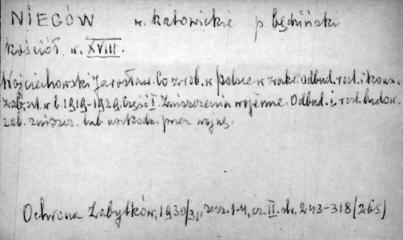 NIEGÓW w. katowickie p. będziński
Kościół w. XVIII.
Wojciechowski Jarosław. Co zrob. w Polsce w zakr. odbud. rest. i kons.
zab. szt. w l. 1919-1929. Część I. Zniszczenia wojenne. Odbud. i rest. budow.
zab. zniszcz. lub uszkodz. przez wojnę.
Ochrona Zabytków, 1930/31, zesz. 1-4, cz. II. str. 243-318 (265)